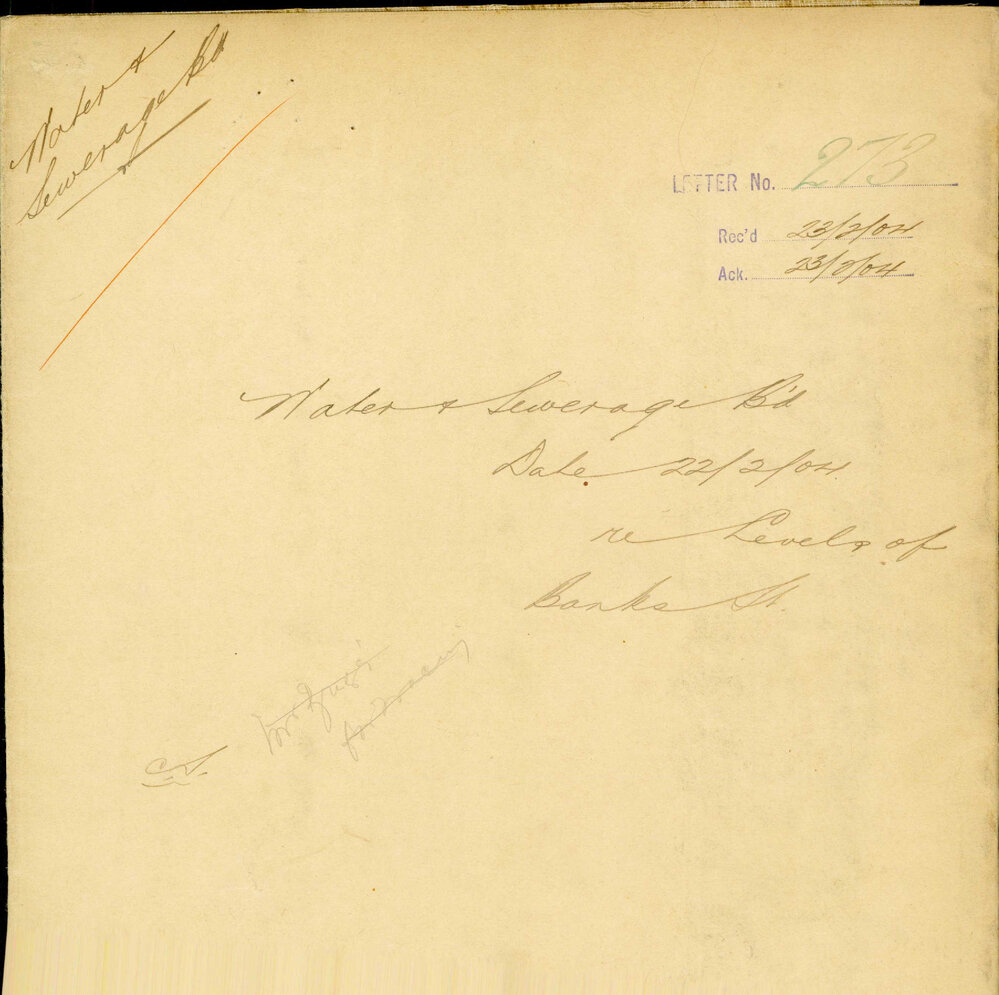 Water &
Sewerage Bd
LETTER No. 273
Rec'd 23/2/04
Ack. 23/2/04
Water & Sewerage B'd
Date 22/2/04.
re Levels of
Banks St.